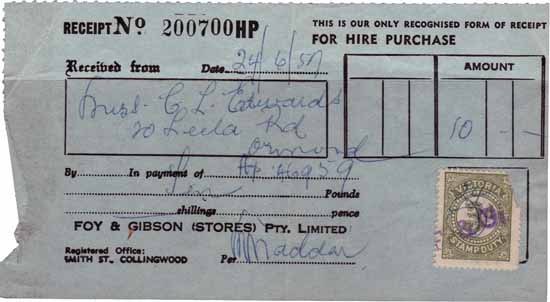 RECEIPT No. 200700HP
THIS IS OUR ONLY RECOGNISED FORM OF RECEIPT
FOR HIRE PURCHASE
Received from Date 24/6/57
AMOUNT
C. L. Edwards
20 Leela Rd
10 - -
Ormond
A/c 46959
By In payment of
Ten Pounds
shillings pence
FOY & GIBSON (STORES) PTY. LIMITED
Registered Office:
SMITH ST., COLLINGWOOD
Per M Maddar
VICTORIA
STAMP DUTY